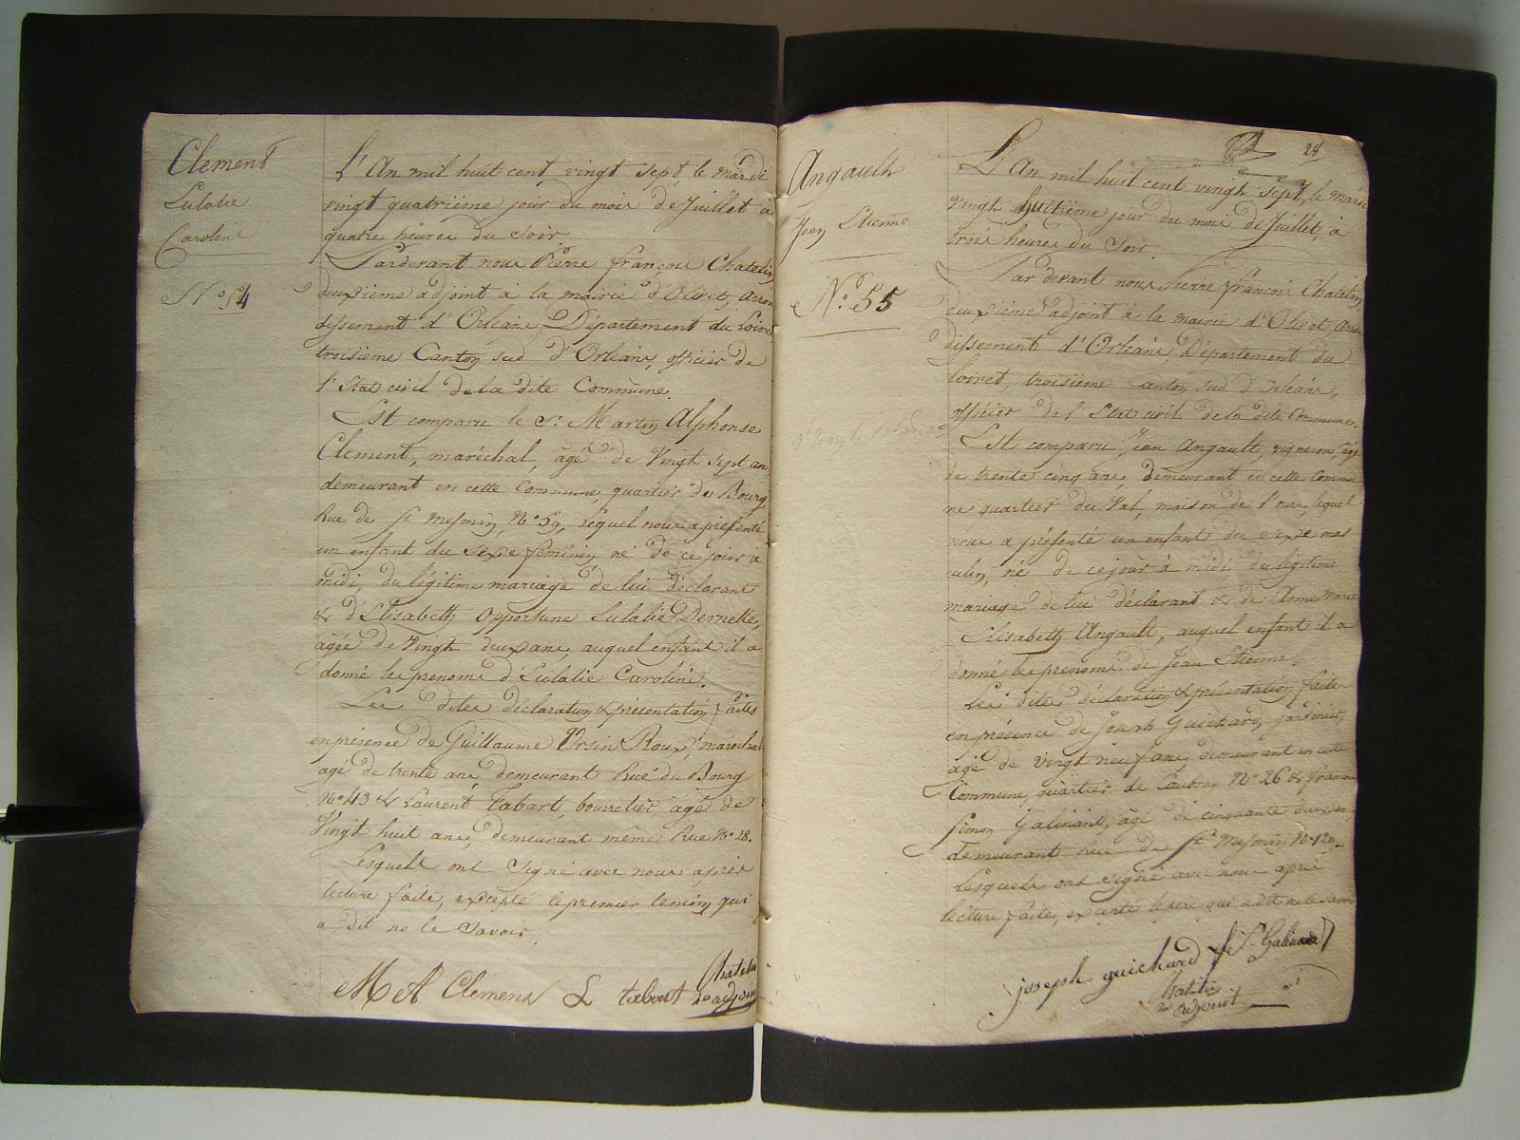 Clement
Eulalie
Caroline
N° 54
L'An mil huit cent vingt sept le mardi
vingt quatrième jour du mois de Juillet à
quatre heures du Soir.
Pardevant nous Pierre françois Chatelin
deuxième adjoint à la mairie d'Olivet, arron
dissement d'Orléans Département du Loiret
troisième Canton sud d'Orléans, officier de
l'Etat civil de la dite Commune.
Est comparu le Sr. Martin Alphonse
Clement, maréchal, âgé de Vingt sept ans
demeurant en cette Commune, quartier du Bourg
Rue de St Mesmin, N° 59, lequel nous a présenté
un enfant du Sexe féminin né de ce jour à
midi, du légitime mariage de lui déclarant
& d'Elisabeth Opportune Eulalie Dernette,
agée de Vingt deux ans, auquel enfant il a
donné les prenoms d'Eulalie Caroline.
Les dites déclaration & présentation faites
en présence de Guillaume Ursin Roux, maréchal
agé de trente ans, demeurant Rue du Bourg
N° 43 & Laurent Tabart, bourrelier âgé de
Vingt huit ans, demeurant même Rue N° 28.
Lesquels ont Signé avec nous après
lecture faite, excepté le premier temoin qui
a dit ne le Savoir.
M A Clement L tabart Chatelin
2e adjoint
28
Angault
Jean Etienne
N° 55
L'An mil huit cent vingt sept, le mardi
vingt huitième jour du mois de Juillet, à
trois heures du Soir.
Par devant nous Pierre françois Chatelin,
deuxième adjoint à la mairie d'Olivet, arron
dissement d'Orléans Département du
Loiret, troisième Canton sud d'Orléans,
officier de l'Etat civil de la dite Commune.
Est comparu Jean Angault, vigneron, âgé
de trente cinq ans, demeurant en cette Commu
ne quartier du Val, maison de l'  lequel
nous a présenté un enfant du sexe mas
culin, né de ce jour à midi du légitime
mariage de lui déclarant & de Anne Marie
Elisabeth Angault, auquel enfant il a
donné les prenoms de Jean Etienne.
Les dites déclaration & présentation faites
en présence de Joseph Guichard, jardinier,
agé de vingt neuf ans, demeurant en cette
Commune, quartier de  N° 26 & françois
Simon Galinand, âgé de cinquante deux ans,
demeurant rue de St Mesmin N° 120.
Lesquels ont signé avec nous après
lecture faite, excepté le père qui a dit ne le savoir
joseph guichard f S Galinand
Chatelin
2e adjoint